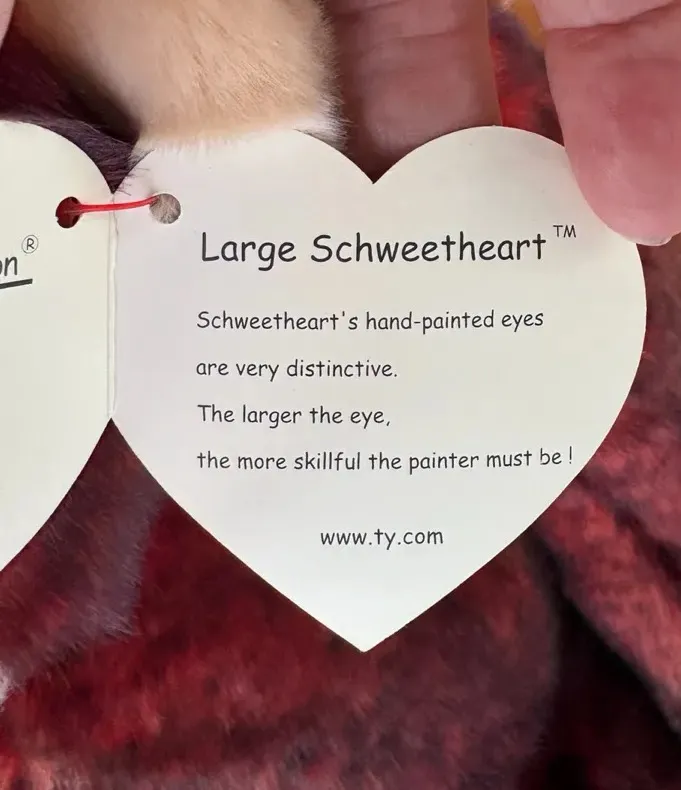 Large Schweetheart™
Schweetheart's hand-painted eyes
are very distinctive.
The larger the eye,
the more skillful the painter must be!
www.ty.com